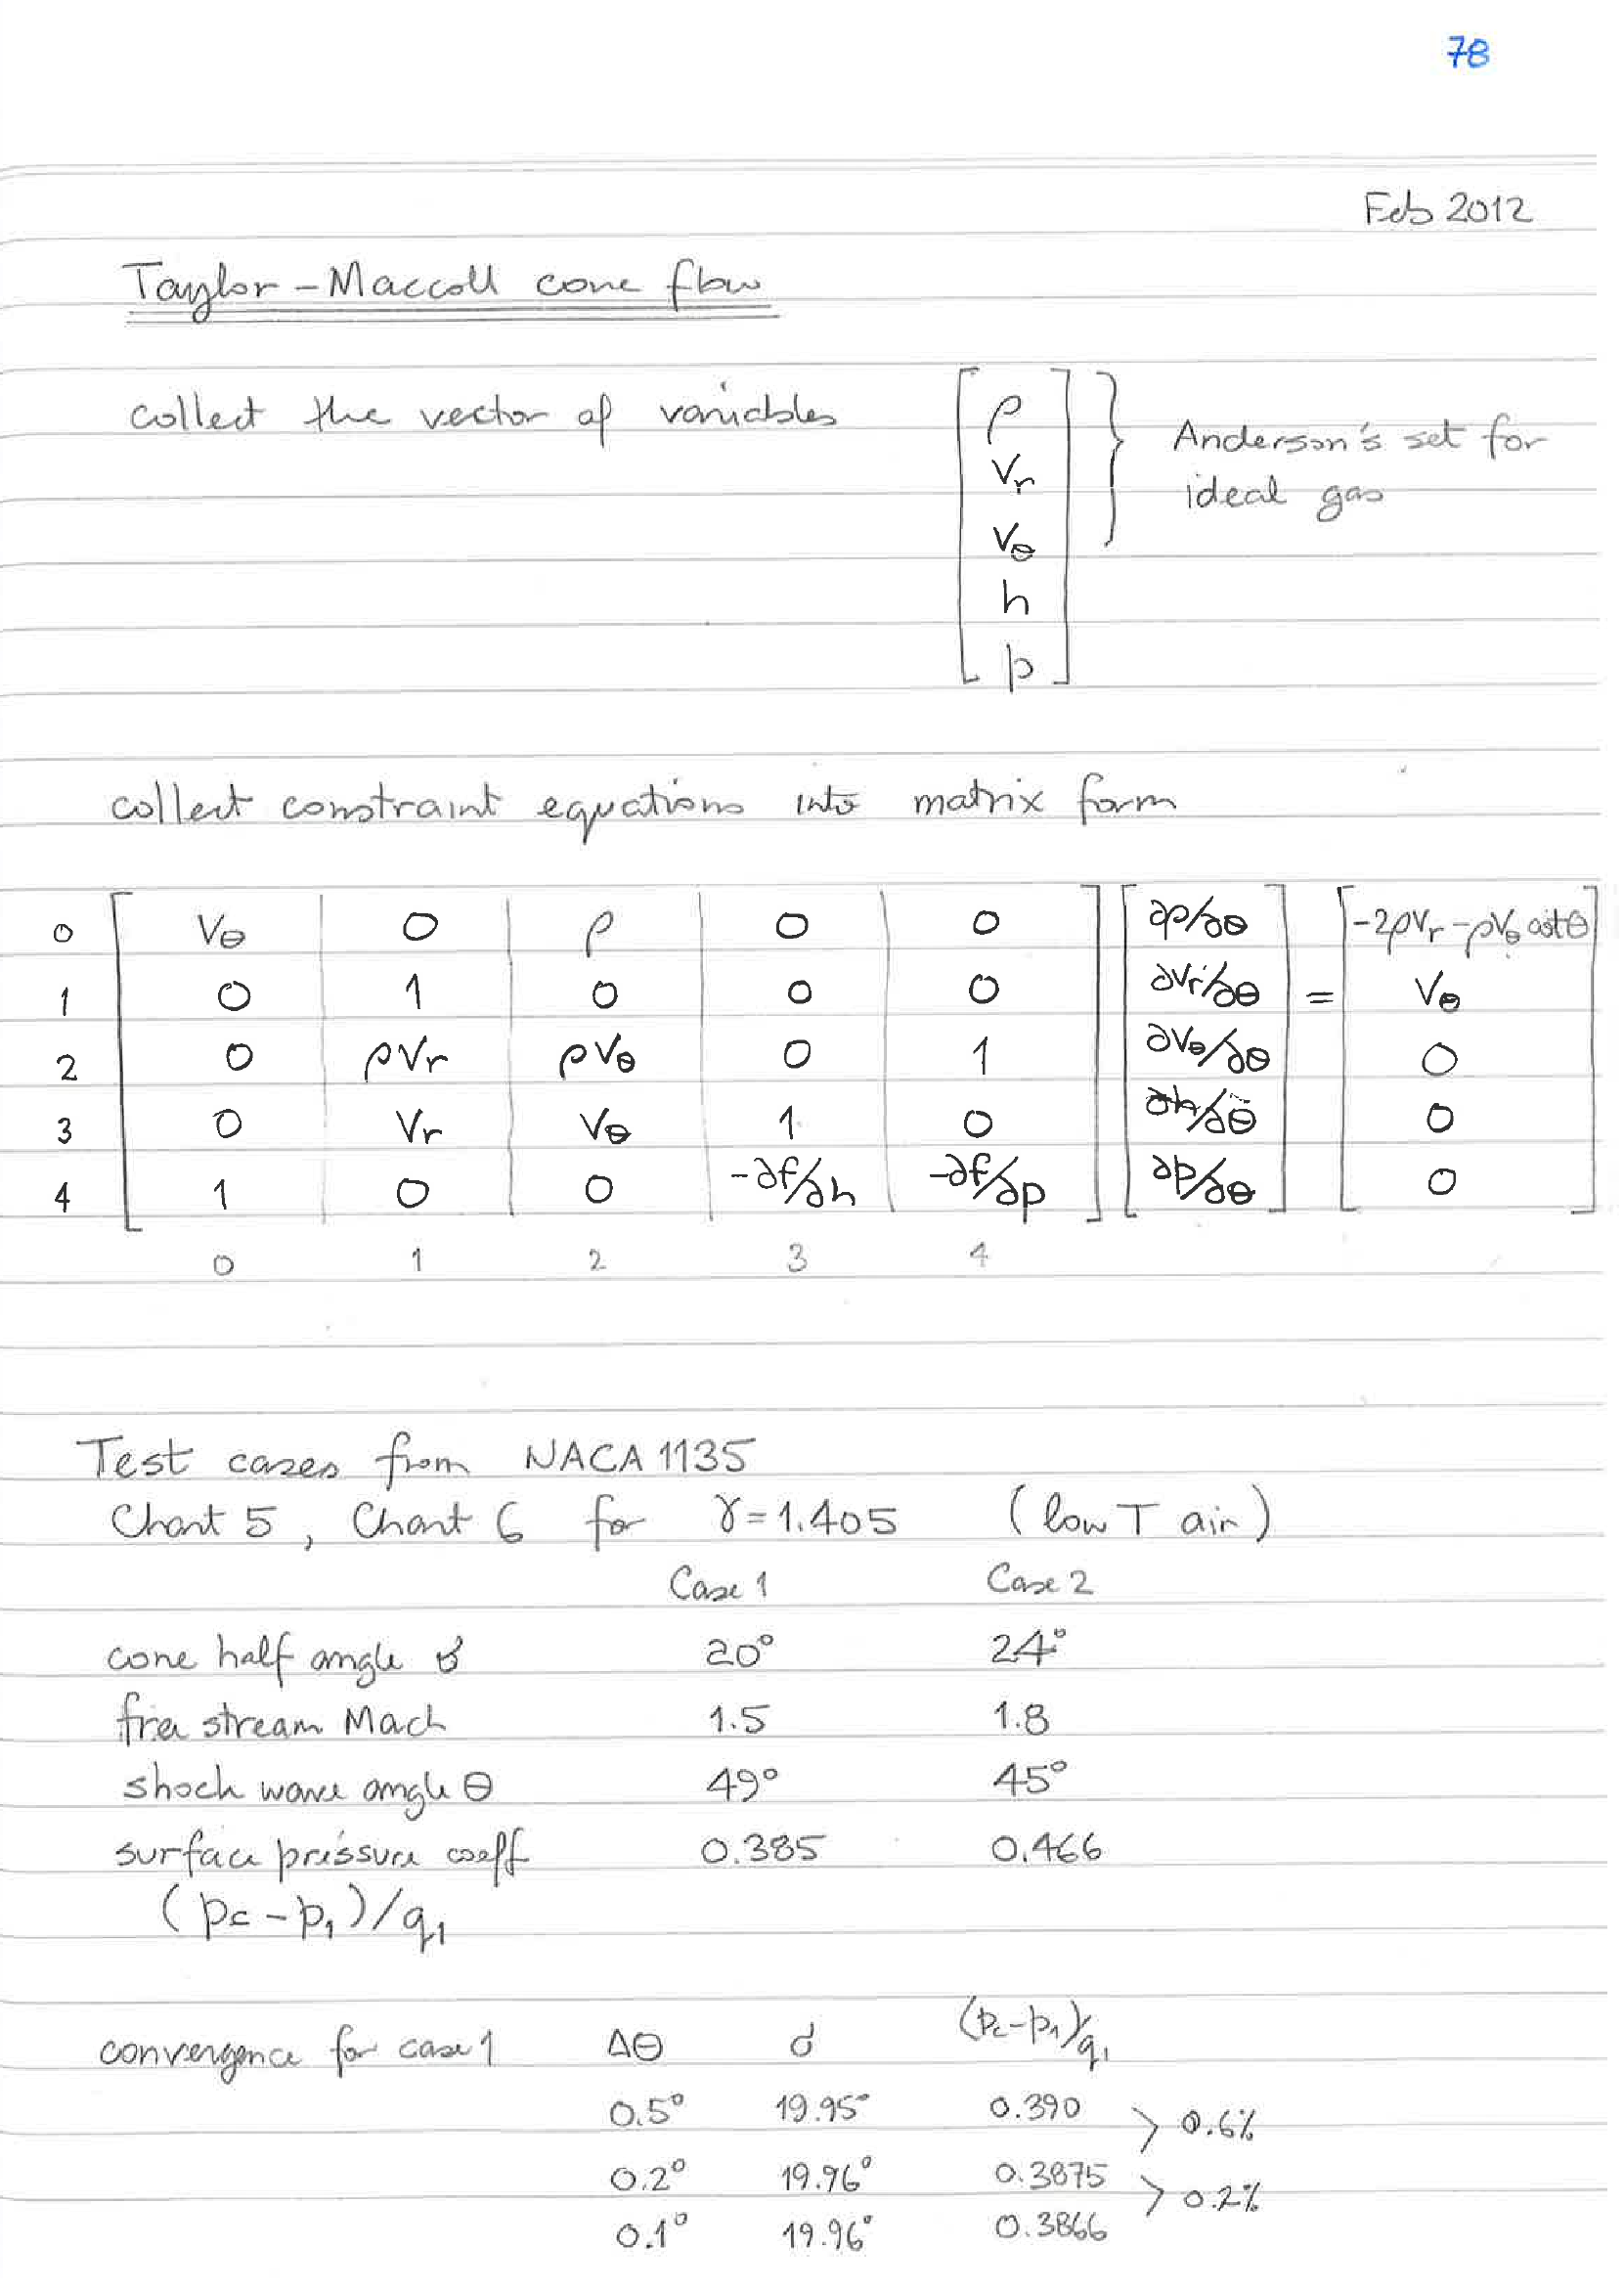 78
Feb 2012
Taylor-Maccoll cone flow
collect the vector of variables
ρ
Vr
Vθ
h
p
Anderson's set for
ideal gas
collect constraint equations into matrix form
0 Vθ 0 ρ 0 0 ∂ρ/∂θ -2ρVr - ρVθ cotθ
1 0 1 0 0 0 ∂Vr/∂θ = Vθ
2 0 ρVr ρVθ 0 1 ∂Vθ/∂θ 0
3 0 Vr Vθ 1 0 ∂h/∂θ 0
4 1 0 0 -∂f/∂h -∂f/∂p ∂p/∂θ 0
0 1 2 3 4
Test cases from NACA 1135
Chart 5, Chart 6 for γ=1.405 (low T air)
Case 1 Case 2
cone half angle σ 20° 24°
free stream Mach 1.5 1.8
shock wave angle θ 49° 45°
surface pressure coeff 0.385 0.466
(pc - p1)/q1
convergence for case 1 Δθ σ (pc-p1)/q1
0.5° 19.95° 0.390 > 0.6%
0.2° 19.96° 0.3875 > 0.2%
0.1° 19.96° 0.3866